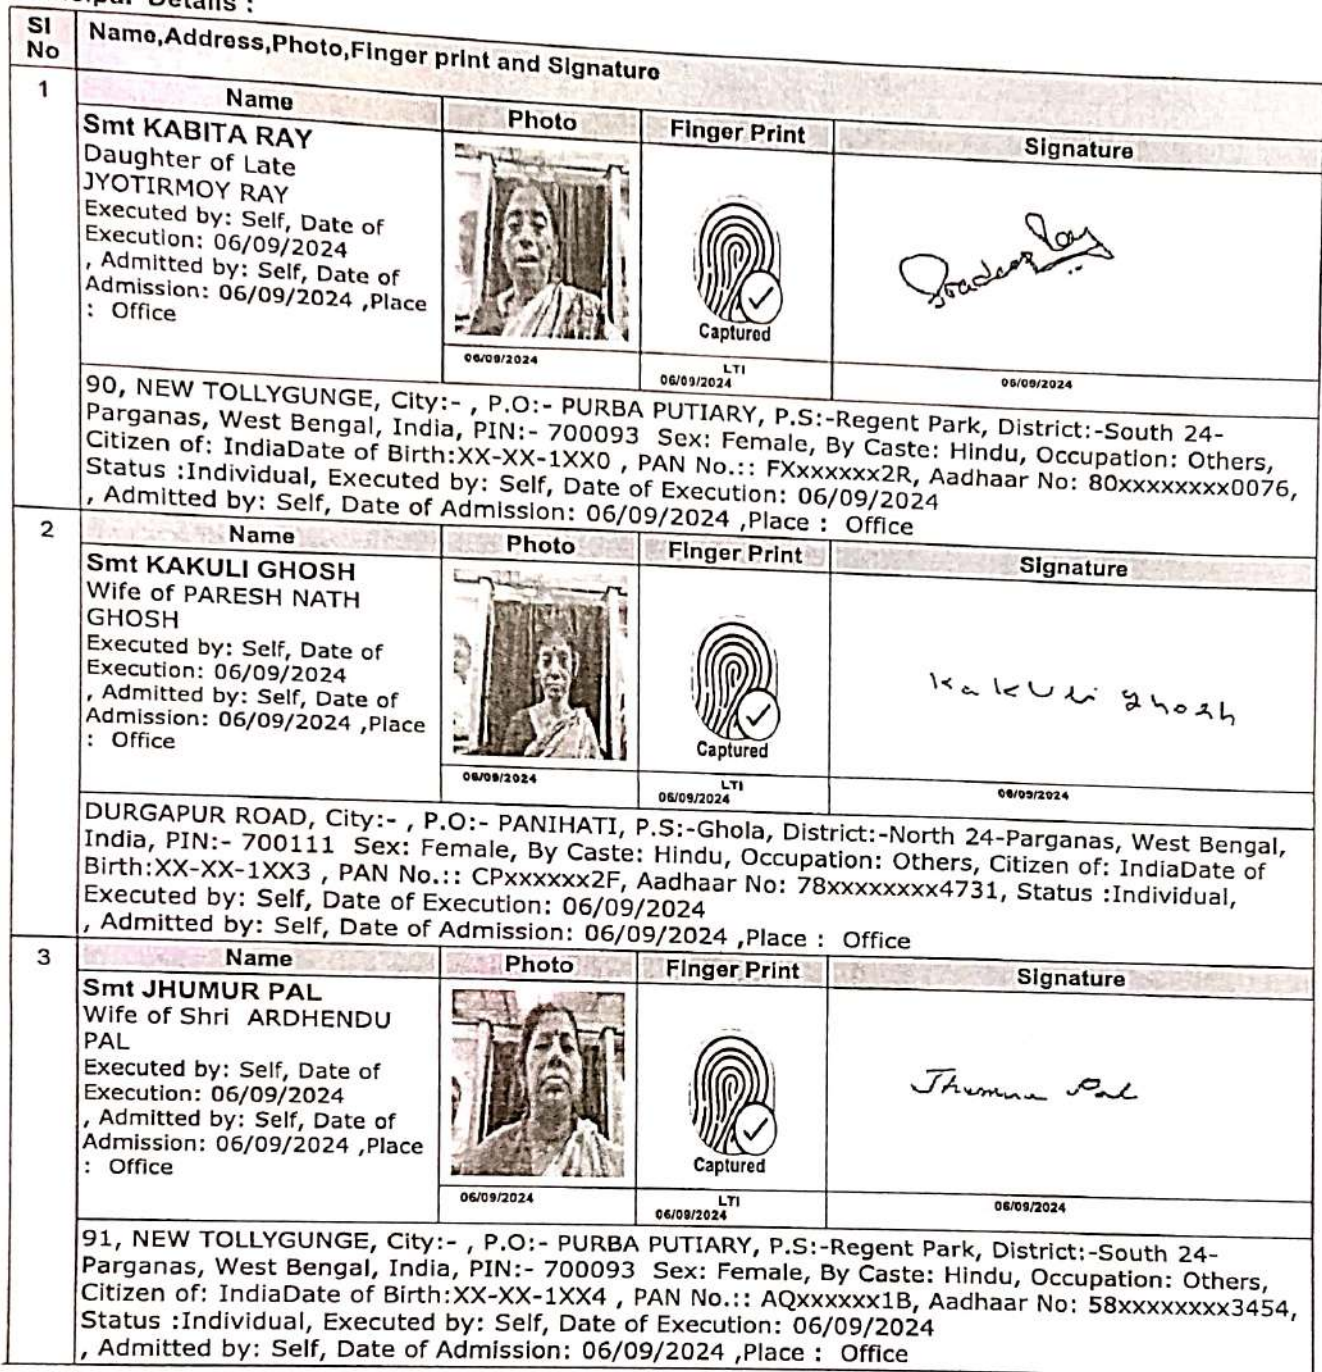 Details :
Sl No
Name,Address,Photo,Finger print and Signature
1
Name
Photo
Finger Print
Signature
Smt KABITA RAY
Daughter of Late
JYOTIRMOY RAY
Executed by: Self, Date of
Execution: 06/09/2024
, Admitted by: Self, Date of
Admission: 06/09/2024 ,Place
: Office
Captured
06/09/2024
LTI
06/09/2024
06/09/2024
90, NEW TOLLYGUNGE, City:- , P.O:- PURBA PUTIARY, P.S:-Regent Park, District:-South 24-
Parganas, West Bengal, India, PIN:- 700093 Sex: Female, By Caste: Hindu, Occupation: Others,
Citizen of: IndiaDate of Birth:XX-XX-1XX0 , PAN No.:: FXxxxxxx2R, Aadhaar No: 80xxxxxxxx0076,
Status :Individual, Executed by: Self, Date of Execution: 06/09/2024
, Admitted by: Self, Date of Admission: 06/09/2024 ,Place : Office
2
Name
Photo
Finger Print
Signature
Smt KAKULI GHOSH
Wife of PARESH NATH
GHOSH
Executed by: Self, Date of
Execution: 06/09/2024
, Admitted by: Self, Date of
Admission: 06/09/2024 ,Place
: Office
Captured
Kakuli Ghosh
06/09/2024
LTI
06/09/2024
06/09/2024
DURGAPUR ROAD, City:- , P.O:- PANIHATI, P.S:-Ghola, District:-North 24-Parganas, West Bengal,
India, PIN:- 700111 Sex: Female, By Caste: Hindu, Occupation: Others, Citizen of: IndiaDate of
Birth:XX-XX-1XX3 , PAN No.:: CPxxxxxx2F, Aadhaar No: 78xxxxxxxx4731, Status :Individual,
Executed by: Self, Date of Execution: 06/09/2024
, Admitted by: Self, Date of Admission: 06/09/2024 ,Place : Office
3
Name
Photo
Finger Print
Signature
Smt JHUMUR PAL
Wife of Shri ARDHENDU
PAL
Executed by: Self, Date of
Execution: 06/09/2024
, Admitted by: Self, Date of
Admission: 06/09/2024 ,Place
: Office
Captured
Jhumur Pal
06/09/2024
LTI
06/09/2024
06/09/2024
91, NEW TOLLYGUNGE, City:- , P.O:- PURBA PUTIARY, P.S:-Regent Park, District:-South 24-
Parganas, West Bengal, India, PIN:- 700093 Sex: Female, By Caste: Hindu, Occupation: Others,
Citizen of: IndiaDate of Birth:XX-XX-1XX4 , PAN No.:: AQxxxxxx1B, Aadhaar No: 58xxxxxxxx3454,
Status :Individual, Executed by: Self, Date of Execution: 06/09/2024
, Admitted by: Self, Date of Admission: 06/09/2024 ,Place : Office